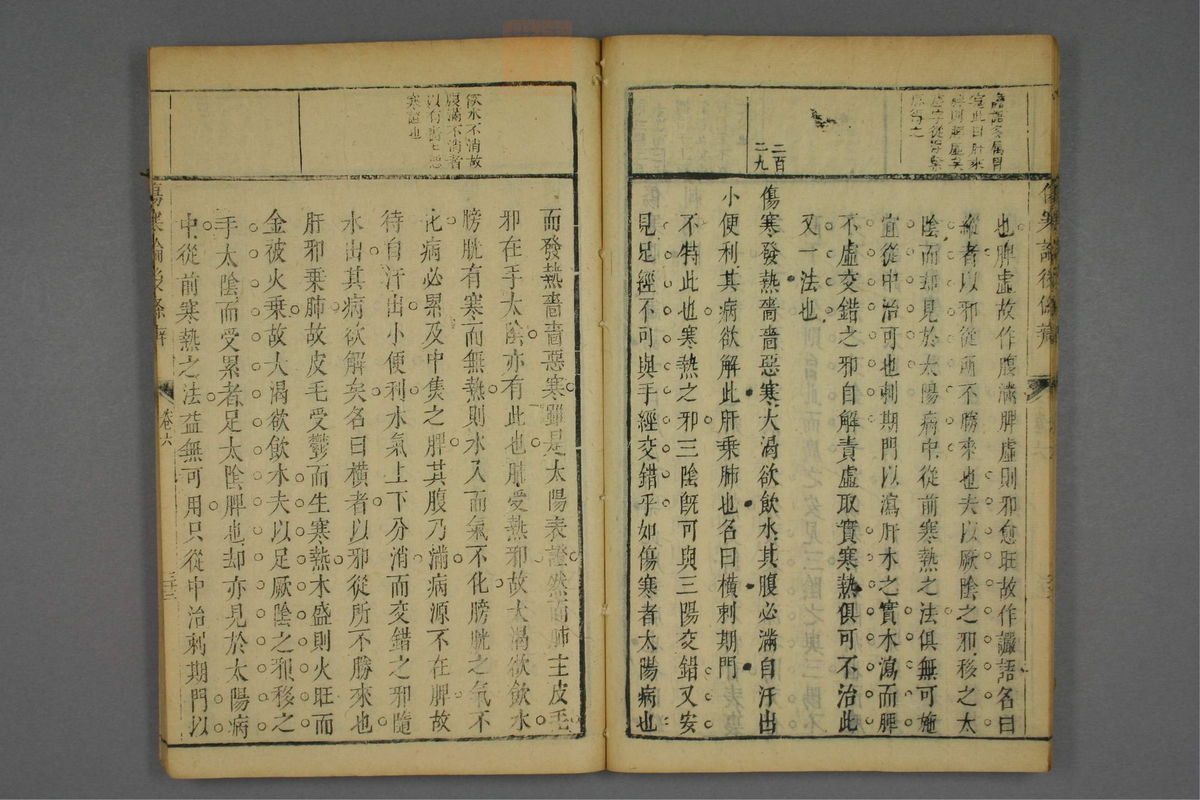 傷寒論後條辨
也脾虛故作腹滿脾虛則邪愈旺故作讝語名曰
縱者以邪從所不勝來也夫以厥陰之邪移之太
陰而却見於太陽病中從前寒熱之法俱無可施
宜從中治可也刺期門以瀉肝木之實木瀉而脾
不虛交錯之邪自解責虛取實寒熱俱可不治此
又一法也
二百二九
傷寒發熱嗇嗇惡寒大渴欲飲水其腹必滿自汗出
小便利其病欲解此肝乘肺也名曰橫刺期門
不特此也寒熱之邪三陰旣可與三陽交錯又安
見足經不可與手經交錯乎如傷寒者太陽病也
飲水不消故
腹滿不消者
寒證也
而發熱嗇嗇惡寒雖是太陽表證然而肺主皮毛
邪在手太陰亦有此也肺受熱邪故大渴欲飲水
膀胱有寒而無熱則水入而氣不化膀胱之氣不
化病必累及中焦之脾其腹乃滿病源不在脾故
待自汗出小便利水氣上下分消而交錯之邪隨
水出其病欲解矣名曰橫者以邪從所不勝來也
肝邪乘肺故皮毛受鬱而生寒熱木盛則火旺而
金被火乘故大渴欲飲水夫以足厥陰之邪移之
手太陰而受累者足太陰脾也却亦見於太陽病
中從前寒熱之法益無可用只從中治刺期門以
傷寒論後條辨
卷六
三十三